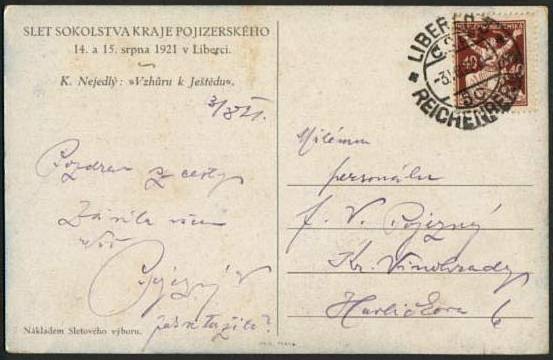 SLET SOKOLSTVA KRAJE POJIZERSKÉHO
14. a 15. srpna 1921 v Liberci.
K. Nejedlý: »Vzhůru k Ještědu«.
3/8 21.
Pozdrav z cesty
všem
Pojizný
Nákladem Sletového výboru.
LIBEREC
REICHENBERG
40
Milému
personálu
f. V. Pojizný
Kr. Vinohrady
Havlíčkova 6